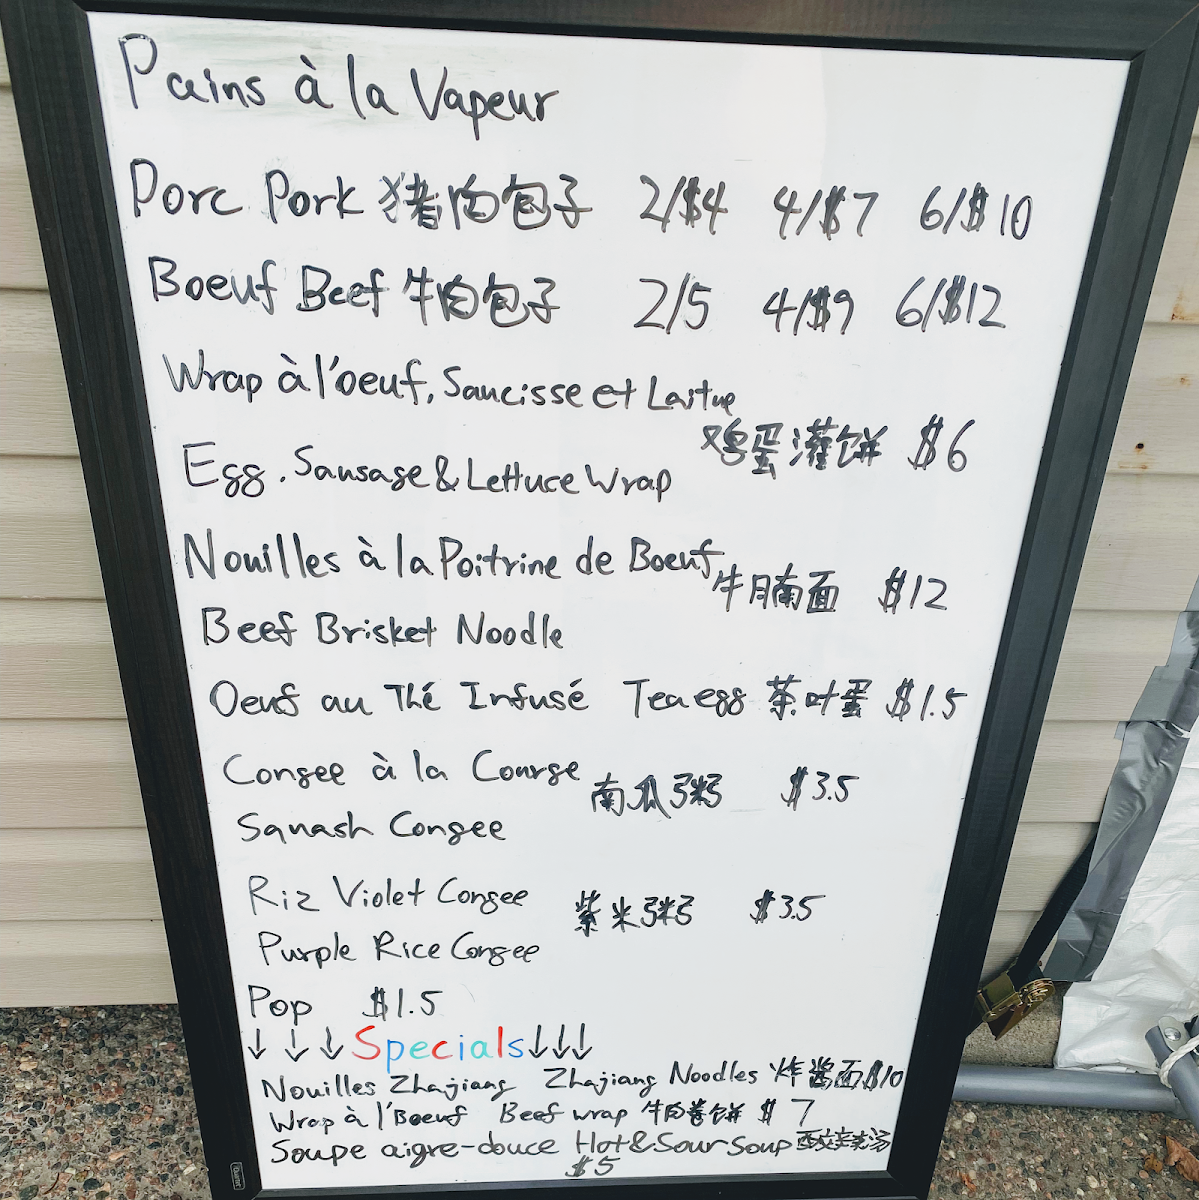 Pains à la Vapeur
Porc Pork 猪肉包子 2/$4 4/$7 6/$10
Boeuf Beef 牛肉包子 2/5 4/$9 6/$12
Wrap à l'oeuf, Saucisse et Laitue
鸡蛋灌饼 $6
Egg, Sausage & Lettuce Wrap
Nouilles à la Poitrine de Boeuf
牛腩面 $12
Beef Brisket Noodle
Oeuf au Thé Infusé Tea egg 茶叶蛋 $1.5
Congee à la Courge
南瓜粥 $3.5
Squash Congee
Riz Violet Congee
紫米粥 $3.5
Purple Rice Congee
Pop $1.5
↓ ↓ ↓ Specials ↓↓↓
Nouilles Zhajiang Zhajiang Noodles 炸酱面 $10
Wrap à l'Boeuf Beef wrap 牛肉卷饼 $7
Soupe aigre-douce Hot & Sour Soup 酸辣汤
$5